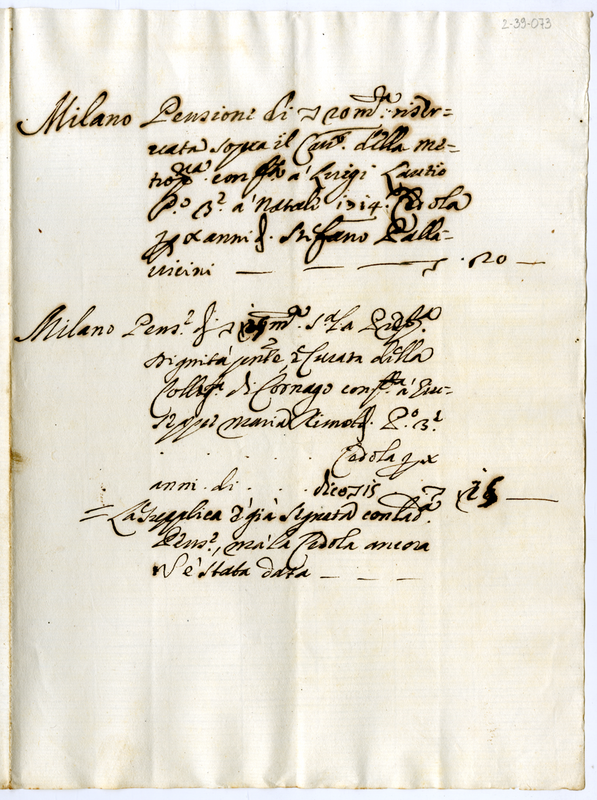 2-39-073
Milano Pensione di 20 m.ta riser=
vata sopra il Can.to della me=
trop.na conf.ta à Luigi
P.o 3.e à Natale 1714. Cedola
p x anni Stefano Palla=
vicini — — — 20 —
Milano Pens.e di m.ta s.a La
dignità Curata della
Colleg.ta di Cornago conf.ta à Giu=
seppe maria P.o 3.e
. . . . Cedola p x
anni . di . . dico 15 15 —
= La Supplica è già Signata con la d.a
Pens.e, mà la Cedola ancora
N è stata data — — —